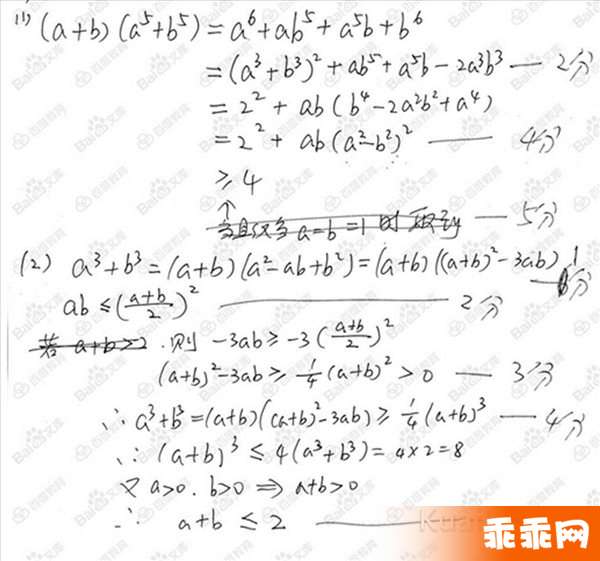 (1) (a+b)(a⁵+b⁵) = a⁶+ab⁵+a⁵b+b⁶
= (a³+b³)²+ab⁵+a⁵b−2a³b³ — 2分
= 2²+ab(b⁴−2a²b²+a⁴)
= 2²+ab(a²−b²)² — 4分
≥4
↑
当且仅当 a=b=1 时 取 — 5分
(2) a³+b³=(a+b)(a²−ab+b²)=(a+b)((a+b)²−3ab) — 1分
ab≤(a+b/2)² — 2分
若 a+b>2. 则 −3ab≥−3(a+b/2)²
(a+b)²−3ab≥1/4(a+b)²>0 — 3分
∴ a³+b³=(a+b)((a+b)²−3ab)≥1/4(a+b)³ — 4分
∴ (a+b)³≤4(a³+b³)=4×2=8
又 a>0. b>0 ⟹ a+b>0
∴ a+b≤2 —
乖乖网